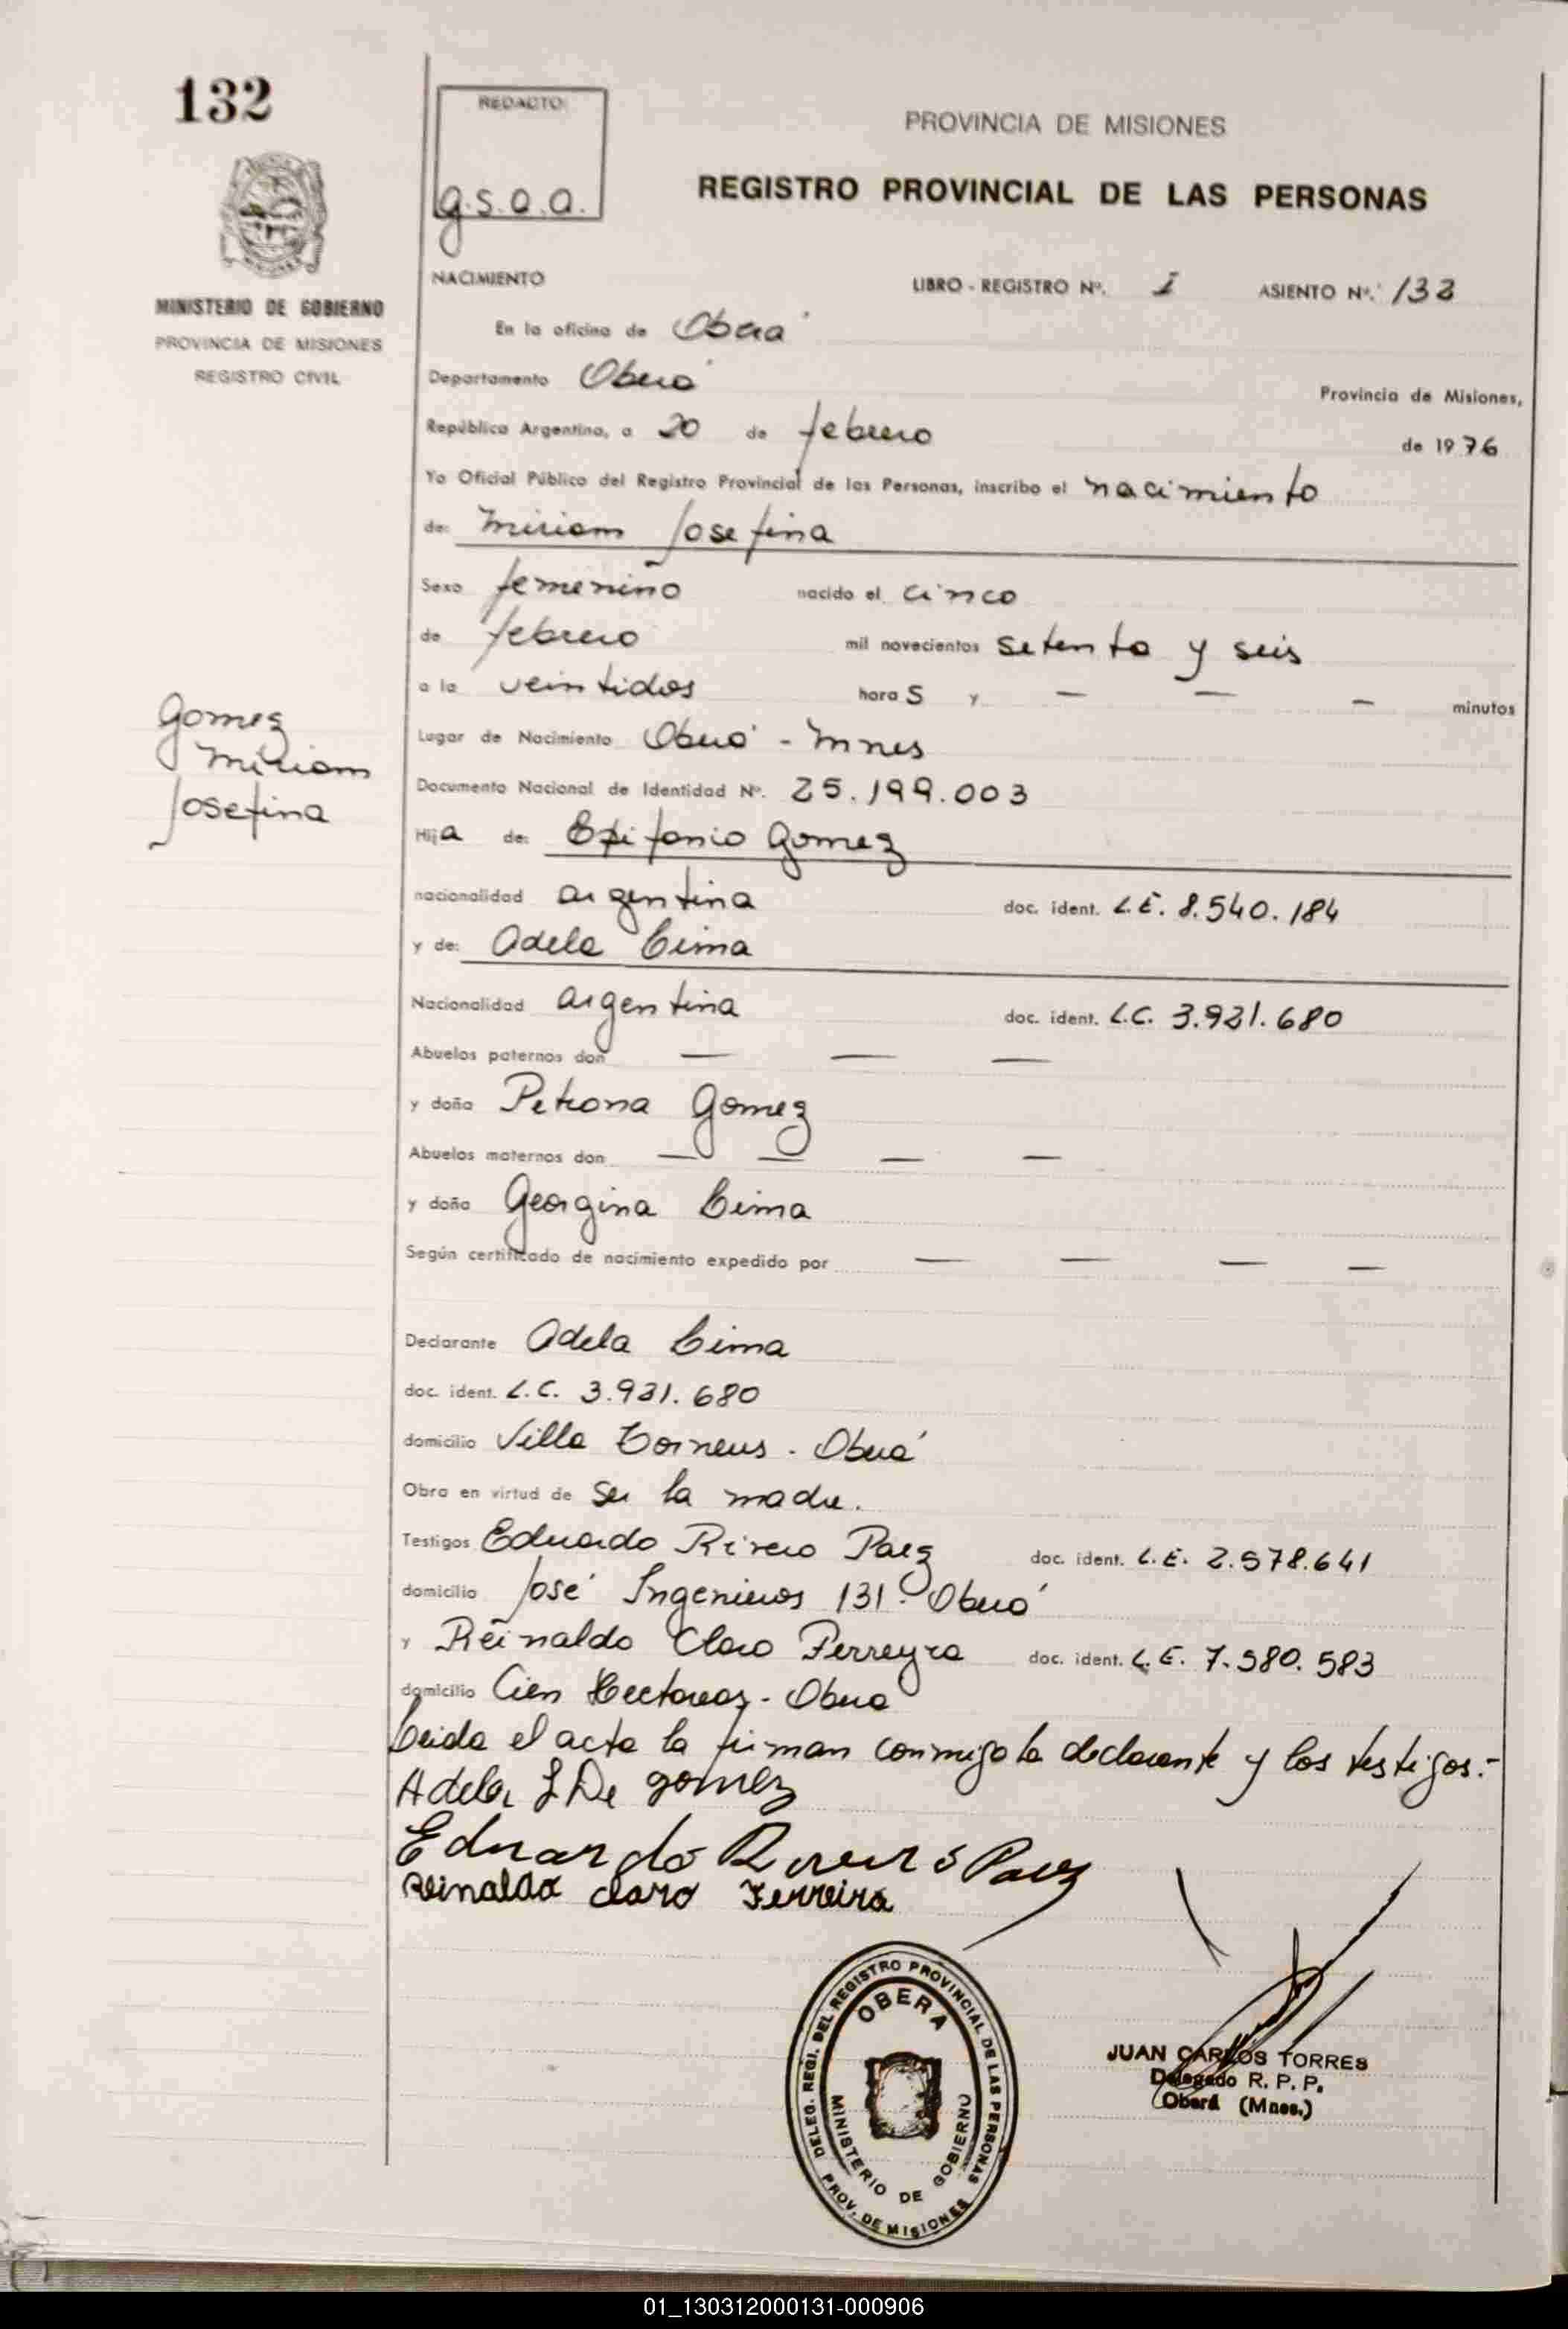 132
REDACTO
g.s.a.a.
PROVINCIA DE MISIONES
REGISTRO PROVINCIAL DE LAS PERSONAS
MINISTERIO DE GOBIERNO
PROVINCIA DE MISIONES
REGISTRO CIVIL
NACIMIENTO LIBRO - REGISTRO Nº. I ASIENTO Nº. 132
En la oficina de Oberá
Departamento Oberá Provincia de Misiones,
República Argentina, a 20 de febrero de 1976
Yo Oficial Público del Registro Provincial de las Personas, inscribo el nacimiento
de: Miriam Josefina
Sexo femenino nacido el cinco
de febrero mil novecientos setenta y seis
a la veintidos horas y — — — minutos
Gomez
Miriam
Josefina
Lugar de Nacimiento Oberá - Mnes
Documento Nacional de Identidad Nº. 25.199.003
Hija de: Epifanio Gomez
nacionalidad argentina doc. ident. L.E. 8.540.184
y de: Adela Lima
Nacionalidad argentina doc. ident. L.C. 3.921.680
Abuelos paternos don — — —
y doña Petrona Gomez
Abuelos maternos don — — — —
y doña Georgina Lima
Según certificado de nacimiento expedido por — — — —
Declarante Adela Lima
doc. ident. L.C. 3.921.680
domicilio Villa Torneus - Oberá
Obra en virtud de ser la madre.
Testigos Eduardo Rivero Paez doc. ident. L.E. 2.578.641
domicilio José Ingenieros 131 - Oberá
y Reinaldo Claro Ferreyra doc. ident. L.E. 7.580.583
domicilio Cien Hectareas - Obera
Leida el acta la firman conmigo la declarante y los testigos.-
Adela L De gomez
Eduardo Rivero Paez
Reinaldo claro Ferreira
DELEG. REGI. DEL REGISTRO PROVINCIAL DE LAS PERSONAS
OBERA
MINISTERIO DE GOBIERNO
PROV. DE MISIONES
JUAN CARLOS TORRES
Delegado R. P. P.
Oberá (Mnes.)
01_130312000131-000906